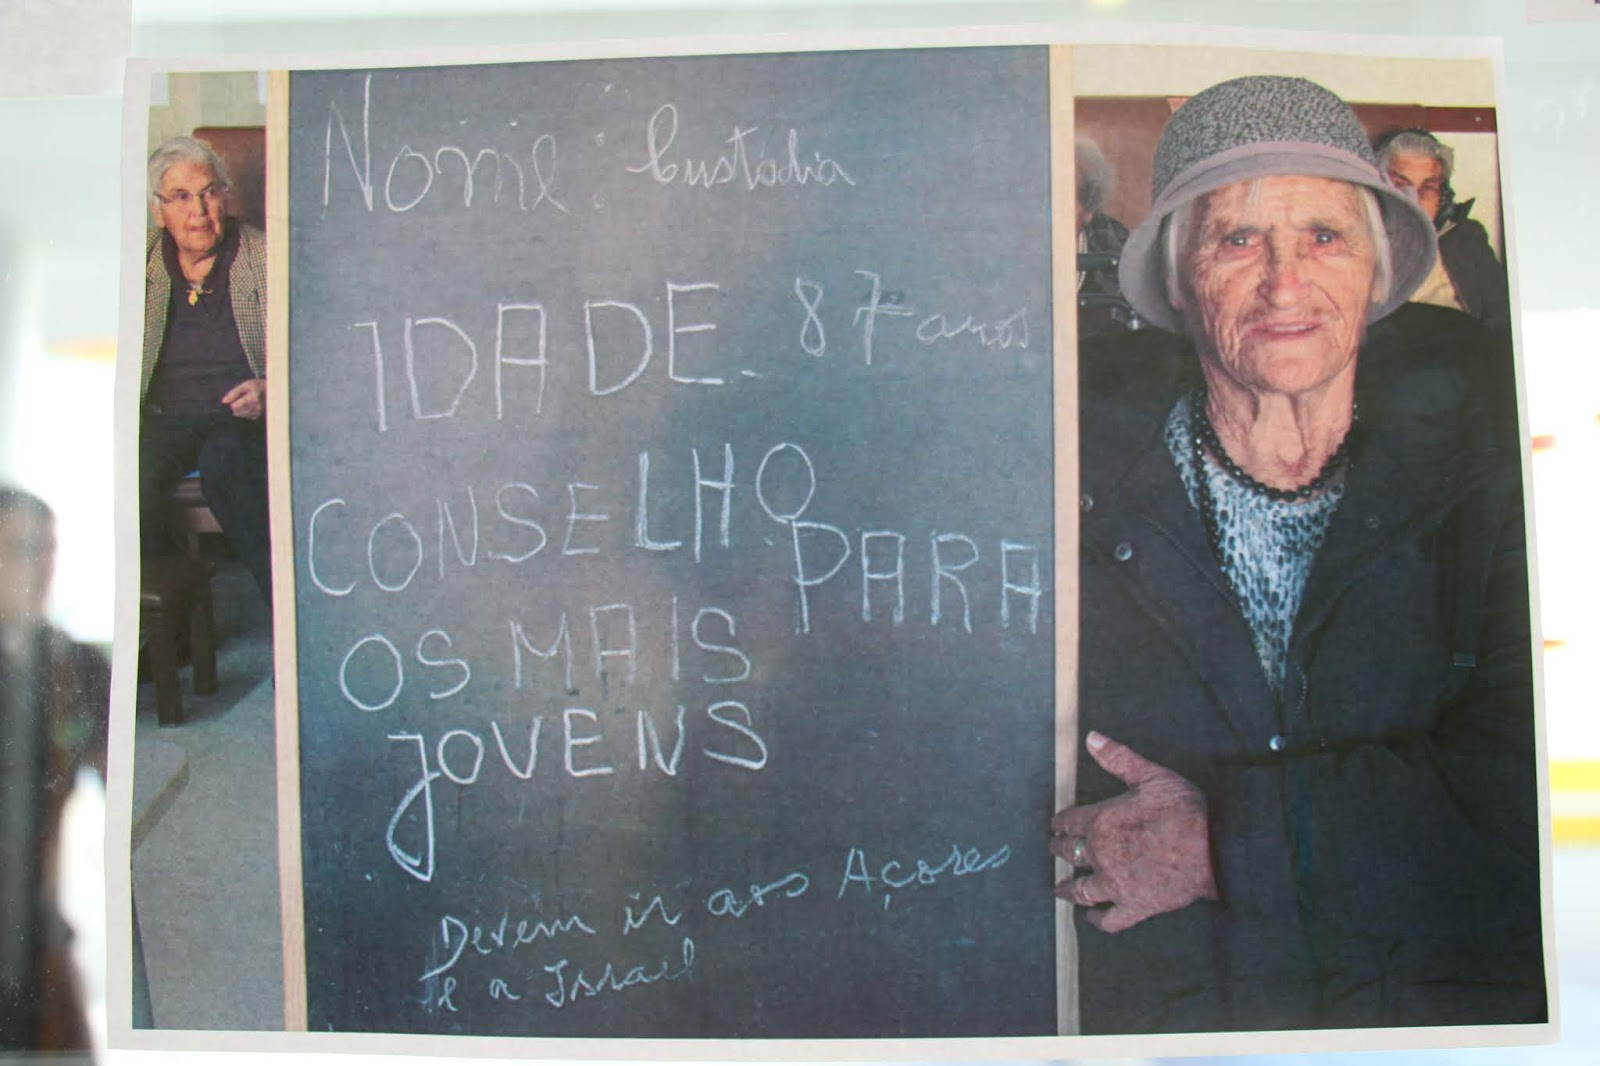 Nome: Custódia
IDADE. 87 anos
CONSELHO PARA
OS MAIS
JOVENS
Devem ir aos Açores
e a Israel